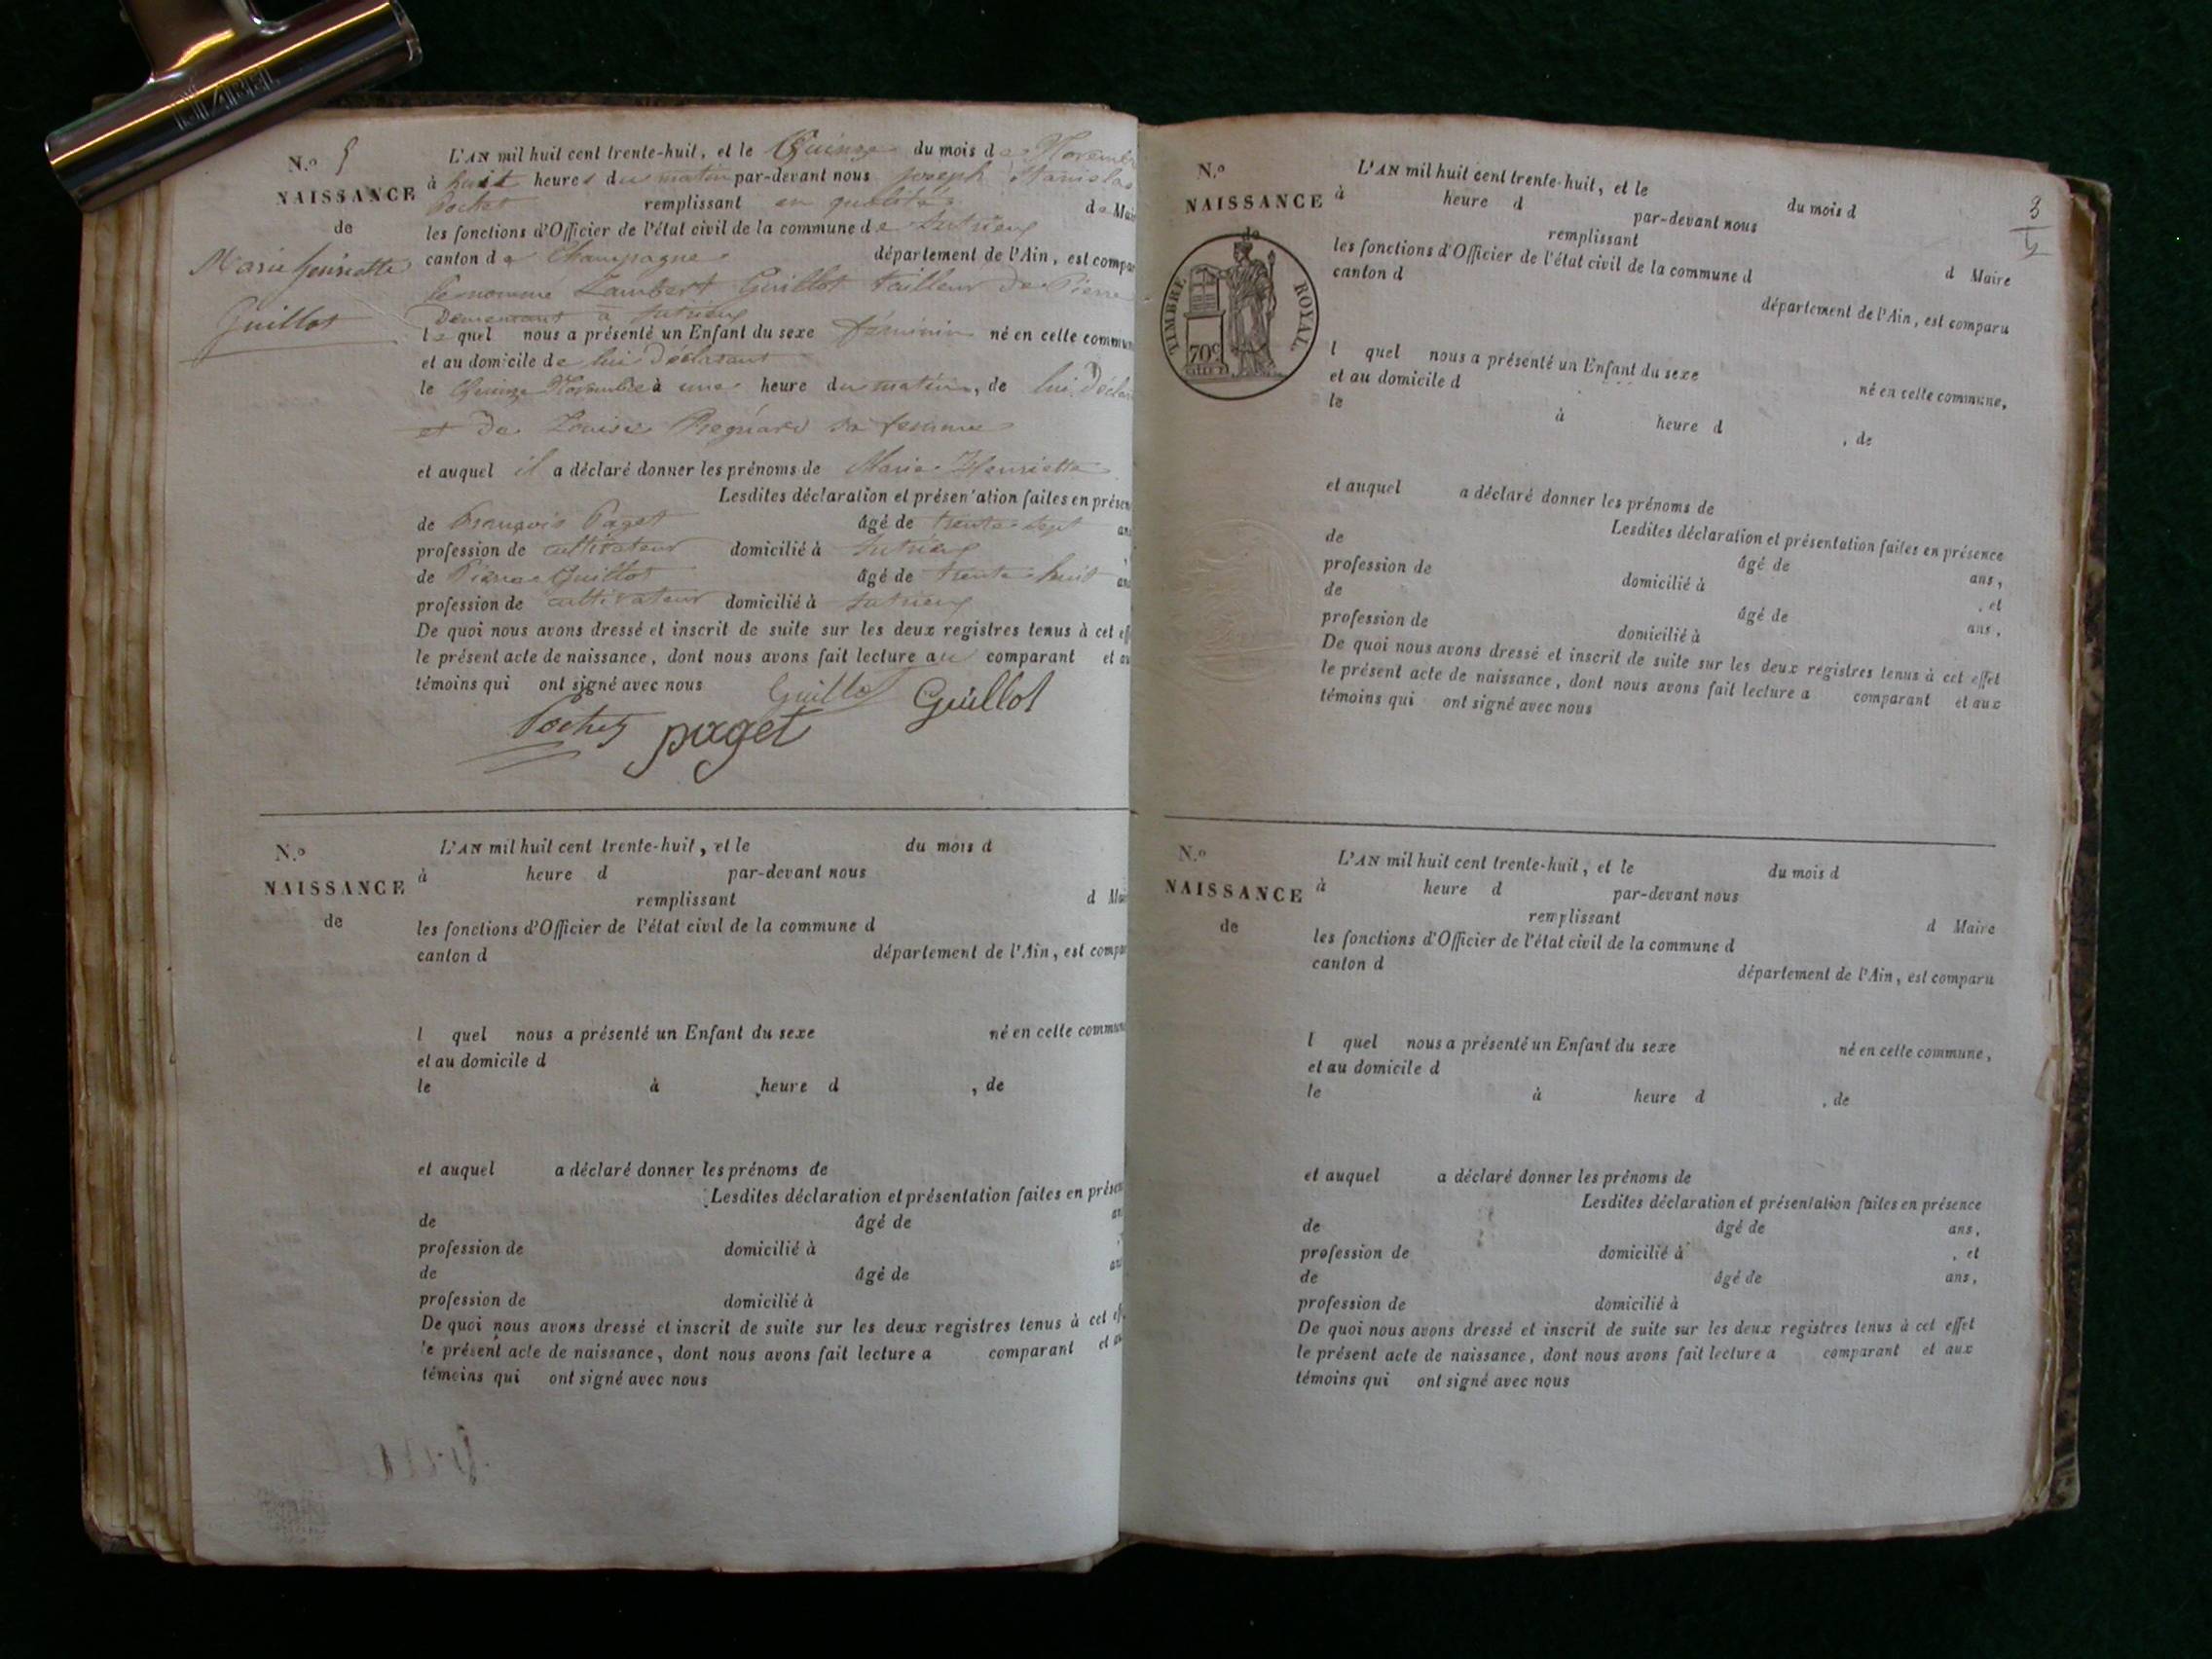 N.º 5
NAISSANCE
de
Marie henriette
Guillot
L'AN mil huit cent trente-huit, et le Quinze du mois de Novembre
à huit heures du matin par-devant nous joseph Stanislas
Pochet remplissant en qualité de Mai
les fonctions d'Officier de l'état civil de la commune de Sutrieu
canton de Champagne département de l'Ain, est compa
le nommé Lambert Guillot tailleur de Pierre
demeurant a Sutrieu
lequel nous a présenté un Enfant du sexe féminin né en cette commun
et au domicile de lui déclarant
le Quinze Novembre à une heure du matin, de lui déclar
et de Louise Regnard sa femme
et auquel il a déclaré donner les prénoms de Marie Henriette
Lesdites déclaration et présen'ation faites en présen
de François Paget âgé de trente sept an
profession de cultivateur domicilié à Sutrieu
de Pierre Guillot âgé de trente huit an
profession de cultivateur domicilié à Sutrieu
De quoi nous avons dressé et inscrit de suite sur les deux registres tenus à cet eff
le présent acte de naissance, dont nous avons fait lecture au comparant et au
témoins qui ont signé avec nous
Guillot Guillot
Pochet paget
N.º
NAISSANCE
de
L'AN mil huit cent trente-huit, et le du mois d
à heure d par-devant nous
remplissant d Mai
les fonctions d'Officier de l'état civil de la commune d
canton d département de l'Ain, est compa
l quel nous a présenté un Enfant du sexe né en cette commun
et au domicile d
le à heure d , de
et auquel a déclaré donner les prénoms de
Lesdites déclaration et présentation faites en présen
de âgé de an
profession de domicilié à
de âgé de an
profession de domicilié à
De quoi nous avons dressé et inscrit de suite sur les deux registres tenus à cet ef
le présent acte de naissance, dont nous avons fait lecture a comparant et au
témoins qui ont signé avec nous
3
N.º
NAISSANCE
de
TIMBRE ROYAL
70c
L'AN mil huit cent trente-huit, et le du mois d
à heure d par-devant nous
remplissant d Maire
les fonctions d'Officier de l'état civil de la commune d
canton d département de l'Ain, est comparu
l quel nous a présenté un Enfant du sexe né en cette commune,
et au domicile d
le à heure d , de
et auquel a déclaré donner les prénoms de
Lesdites déclaration et présentation faites en présence
de âgé de ans,
profession de domicilié à , et
de âgé de ans,
profession de domicilié à
De quoi nous avons dressé et inscrit de suite sur les deux registres tenus à cet effet
le présent acte de naissance, dont nous avons fait lecture a comparant et aux
témoins qui ont signé avec nous
N.º
NAISSANCE
de
L'AN mil huit cent trente-huit, et le du mois d
à heure d par-devant nous
remplissant d Maire
les fonctions d'Officier de l'état civil de la commune d
canton d département de l'Ain, est comparu
l quel nous a présenté un Enfant du sexe né en cette commune,
et au domicile d
le à heure d , de
et auquel a déclaré donner les prénoms de
Lesdites déclaration et présentation faites en présence
de âgé de ans,
profession de domicilié à , et
de âgé de ans,
profession de domicilié à
De quoi nous avons dressé et inscrit de suite sur les deux registres tenus à cet effet
le présent acte de naissance, dont nous avons fait lecture a comparant et aux
témoins qui ont signé avec nous